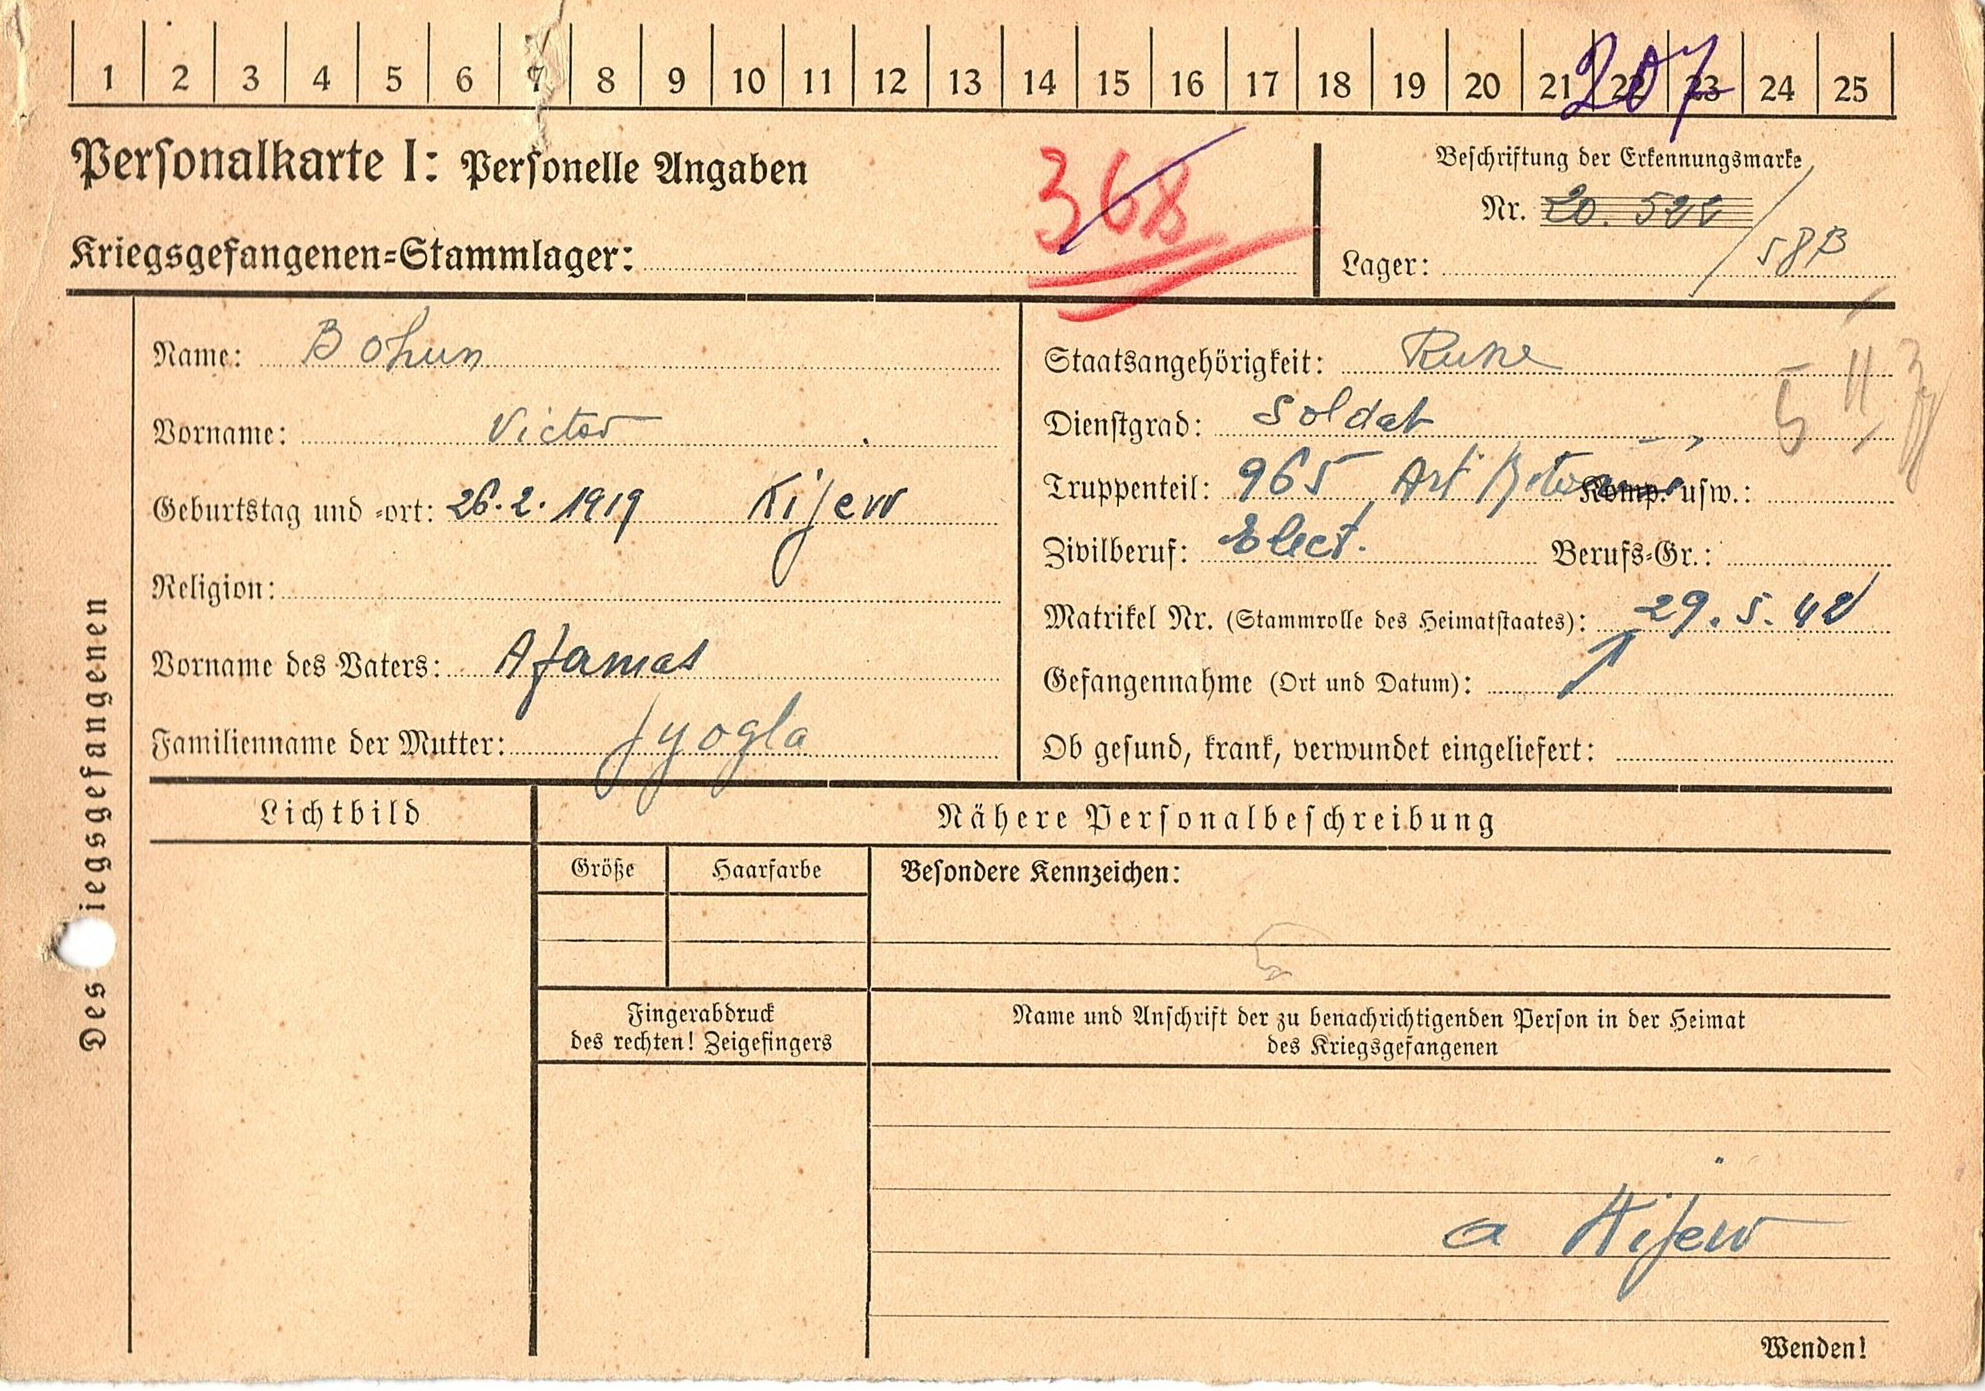 1 2 3 4 5 6 7 8 9 10 11 12 13 14 15 16 17 18 19 20 21 22 23 24 25
207
Personalkarte I: Personelle Angaben
368
Beschriftung der Erkennungsmarke
Nr.
Kriegsgefangenen-Stammlager:
Lager: 58B
Des iegsgefangenen
Name: Bohun
Vorname: Victor
Geburtstag und -ort: 26.2.1919 Kijew
Religion:
Vorname des Vaters: Afamas
Familienname der Mutter:
Staatsangehörigkeit: Russe
Dienstgrad: Soldat
Truppenteil: 965 Art Komp. usw.:
Zivilberuf: Elect. Berufs-Gr.:
Matrikel Nr. (Stammrolle des Heimatstaates): 29.5.42
Gefangennahme (Ort und Datum):
Ob gesund, krank, verwundet eingeliefert:
Lichtbild
Nähere Personalbeschreibung
Größe Haarfarbe
Besondere Kennzeichen:
Fingerabdruck
des rechten! Zeigefingers
Name und Anschrift der zu benachrichtigenden Person in der Heimat
des Kriegsgefangenen
a Kijew
Wenden!